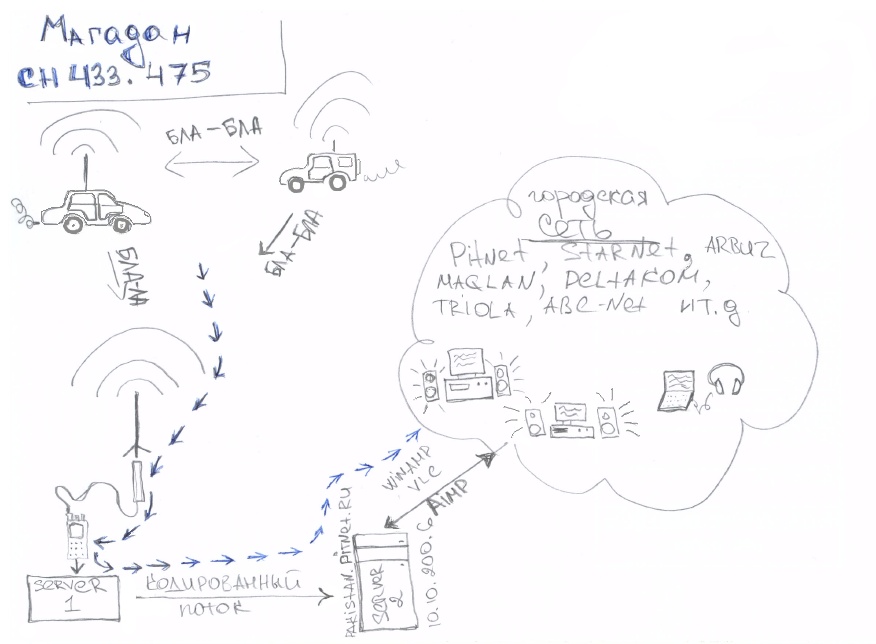 Магадан
CH 433.475
БЛА-БЛА
БЛА-БЛА
БЛА-БЛА
городская
сеть
PitNet, STARNet, ARBUZ
MAGLAN, DELtAKOM,
TRIOLA, ABC-Net ИТ.д
WINAMP
VLC
AIMP
PAKISTAN.PITNET.RU
SERVER
2
10.10.200.6
SERVER
1
КОДИРОВАННЫЙ
ПОТОК